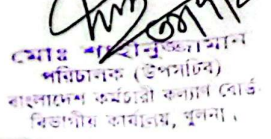 মোঃ শাহানুজ্জামান
পরিচালক (উপসচিব)
বাংলাদেশ কর্মচারী কল্যাণ বোর্ড
বিভাগীয় কার্যালয়, খুলনা।